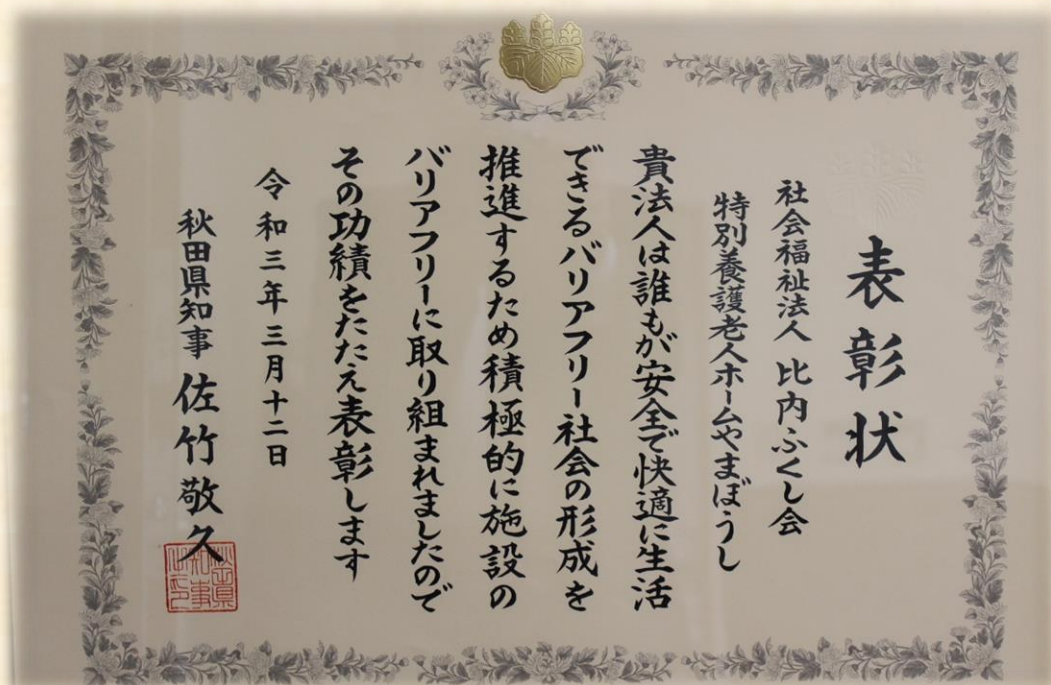 表彰状
社会福祉法人 比内ふくし会
特別養護老人ホームやまぼうし
貴法人は誰もが安全で快適に生活
できるバリアフリー社会の形成を
推進するため積極的に施設の
バリアフリーに取り組まれましたので
その功績をたたえ表彰します
令和三年三月十二日
秋田県知事 佐竹敬久
秋田県
知事
之印